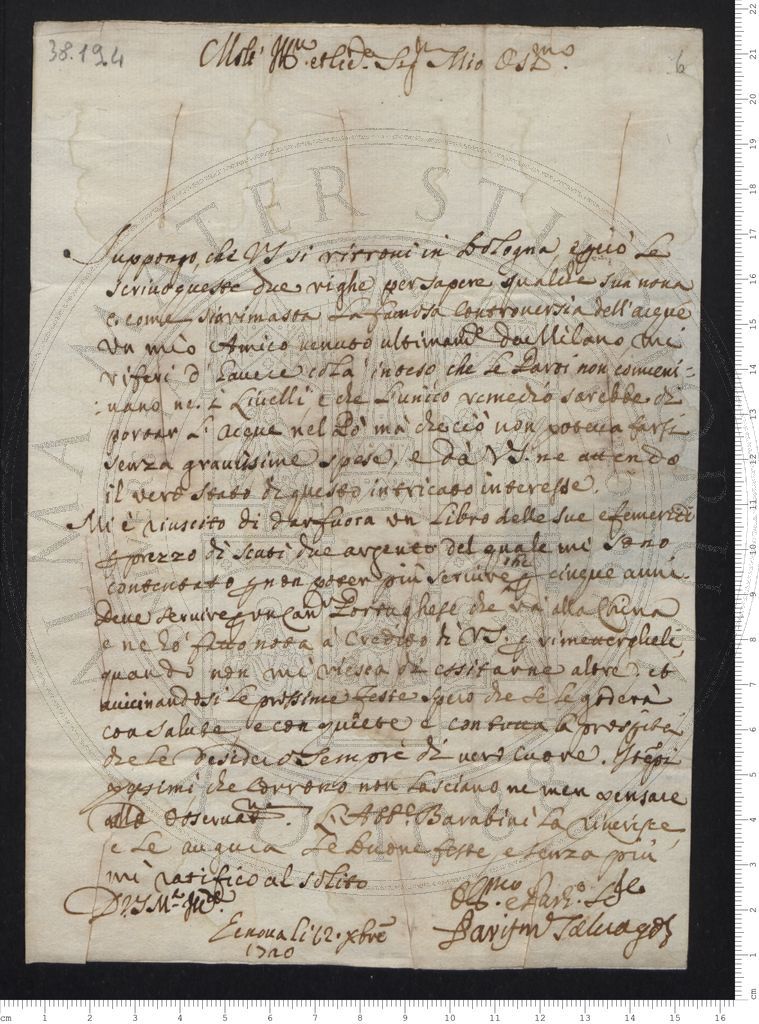 38.19.4
6
Molt' Ill.re et Ecc.te Sig.r Mio Oss.mo
Suppongo, che VS si ritrovi in Bologna, e però le
scrivo queste due righe per sapere qualche sua nova
e come sia rimasta la famosa Controversia dell'acque
Un mio Amico venuto ultimam.te da Milano mi
riferì d'havere colà inteso che le Parti non conveni=
=vano ne i Livelli e che l'unico remedio sarebbe di
portar l'acque nel Pò mà che ciò non poteva farsi
senza gravissime spese, e dà VS. ne attendo
il vero stato di questo intricato interesse.
Mi è riuscito di dar fuora un Libro delle sue efemeridi
p prezzo di scuti due argento del quale mi sono
contentato p non poter più servire che p cinque anni.
Deve servire p un Cav.r Portughese che và alla China
e ne hò fatto nota à Credito di VS. p rimeterglieli,
quando non mi riesca di essitarne altre. et
avicinandosi le prossime Feste spero che se le goderà
con salute, e con quiete e continua la prosperità
che le desidero sempre di vero cuore. I tempi
pessimi che corrono non lasciano ne men pensare
alle observat.ni. L'Abb.e Barabini La riverisce,
e le augura le buone feste, e senza più
mi ratifico al solito
D VS M.to Ill.re
Genova li 12. xbre
1720
Oss.mo e Part.o Se.re
Salvago
cm
1 2 3 4 5 6 7 8 9 10 11 12 13 14 15 16
22
21
20
19
18
17
16
15
14
13
12
11
10
9
8
7
6
5
4
3
2
1
cm